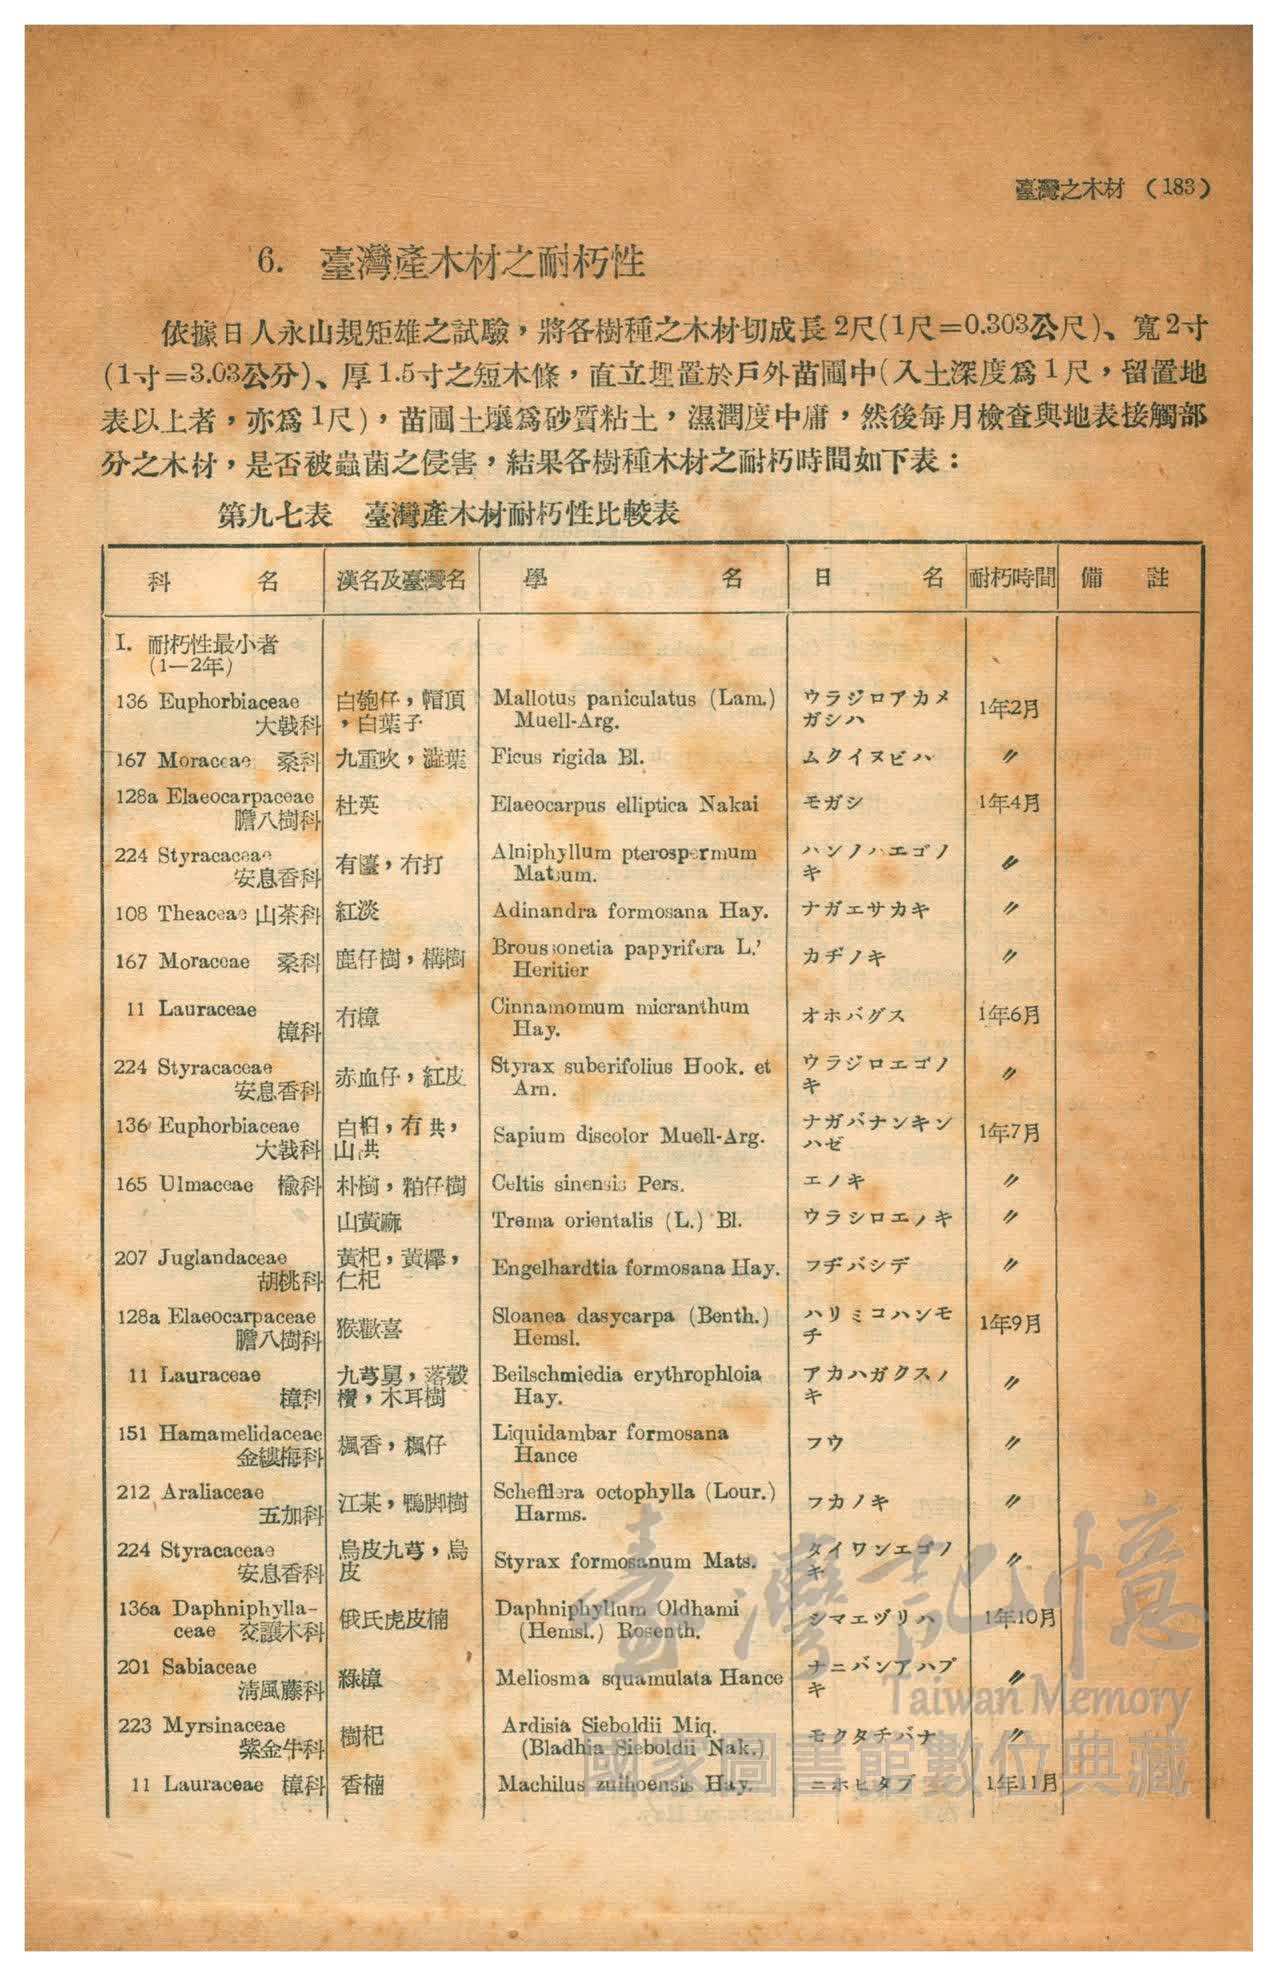 臺灣之木材 (183)
6. 臺灣產木材之耐朽性
依據日人永山規矩雄之試驗，將各樹種之木材切成長2尺(1尺=0.303公尺)、寬2寸
(1寸=3.03公分)、厚1.5寸之短木條，直立埋置於戶外苗圃中(入土深度爲1尺，留置地
表以上者，亦爲1尺)，苗圃土壤爲砂質粘土，濕潤度中庸，然後每月檢查與地表接觸部
分之木材，是否被蟲菌之侵害，結果各樹種木材之耐朽時間如下表：
第九七表 臺灣產木材耐朽性比較表
科 名 漢名及臺灣名 學 名 日 名 耐朽時間 備 註
I. 耐朽性最小者
(1—2年)
136 Euphorbiaceae 白匏仔，帽頂 Mallotus paniculatus (Lam.) ウラジロアカメ 1年2月
大戟科 ，白葉子 Muell-Arg. ガシハ
167 Moraceae 桑科 九重吹，澀葉 Ficus rigida Bl. ムクイヌビハ 〃
128a Elaeocarpaceae 杜英 Elaeocarpus elliptica Nakai モガシ 1年4月
膽八樹科
224 Styracaceae 冇打 Alniphyllum pterospermum ハンノハエゴノ 〃
安息香科 Matsum. キ
108 Theaceae 山茶科 紅淡 Adinandra formosana Hay. ナガエサカキ 〃
167 Moraceae 桑科 鹿仔樹，構樹 Broussonetia papyrifera L.' カヂノキ 〃
Heritier
11 Lauraceae 冇樟 Cinnamomum micranthum オホバグス 1年6月
樟科 Hay.
224 Styracaceae 赤血仔，紅皮 Styrax suberifolius Hook. et ウラジロエゴノ 〃
安息香科 Arn. キ
136 Euphorbiaceae 白桕，冇共， Sapium discolor Muell-Arg. ナガバナンキン 1年7月
大戟科 山共 ハゼ
165 Ulmaceae 楡科 朴樹，粕仔樹 Celtis sinensis Pers. エノキ 〃
山黃麻 Trema orientalis (L.) Bl. ウラシロエノキ 〃
207 Juglandaceae 黃杞，黃欅， Engelhardtia formosana Hay. フヂバシデ 〃
胡桃科 仁杞
128a Elaeocarpaceae 猴歡喜 Sloanea dasycarpa (Benth.) ハリミコハンモ 1年9月
膽八樹科 Hemsl. チ
11 Lauraceae 九芎舅，落殼 Beilschmiedia erythrophloia アカハガクスノ 〃
樟科 ，木耳樹 Hay. キ
151 Hamamelidaceae 楓香，楓仔 Liquidambar formosana フウ 〃
金縷梅科 Hance
212 Araliaceae 江某，鴨脚樹 Schefflera octophylla (Lour.) フカノキ 〃
五加科 Harms.
224 Styracaceae 烏皮九芎，烏 Styrax formosanum Mats. タイワンエゴノ 〃
安息香科 皮 キ
136a Daphniphylla- 俄氏虎皮楠 Daphniphyllum Oldhami シマエヅリハ 1年10月
ceae 交讓木科 (Hemsl.) Rosenth.
201 Sabiaceae 綠樟 Meliosma squamulata Hance ナニバンアハブ 〃
淸風藤科 キ
223 Myrsinaceae 樹杞 Ardisia Sieboldii Miq. モクタチバナ 〃
紫金牛科 (Bladhia Sieboldii Nak.)
11 Lauraceae 樟科 香楠 Machilus zuihoensis Hay. ニホヒタブ 1年11月
臺灣記憶
Taiwan Memory
國家圖書館數位典藏